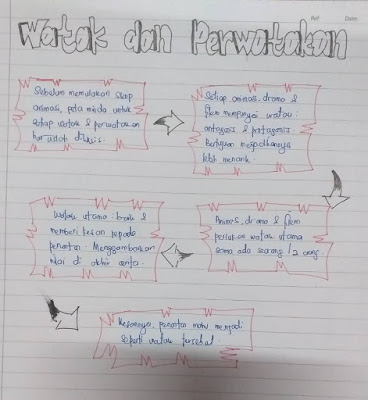 Ref Date
Watak dan Perwatakan
Sebelum memulakan skrip
animasi, peta minda untuk
setiap watak & perwatakan
harus dilukis.
Setiap animasi, drama &
filem mempunyai watak
antagonis & protagonis.
Bertujuan menjadikannya
lebih menarik.
Animasi, drama & filem
perlukan watak utama
sama ada seorang / 2 orang.
Watak utama : baik &
memberi kesan kepada
penonton. Menggambarkan
nilai di akhir cerita.
Kesannya, penonton mahu menjadi
seperti watak tersebut.